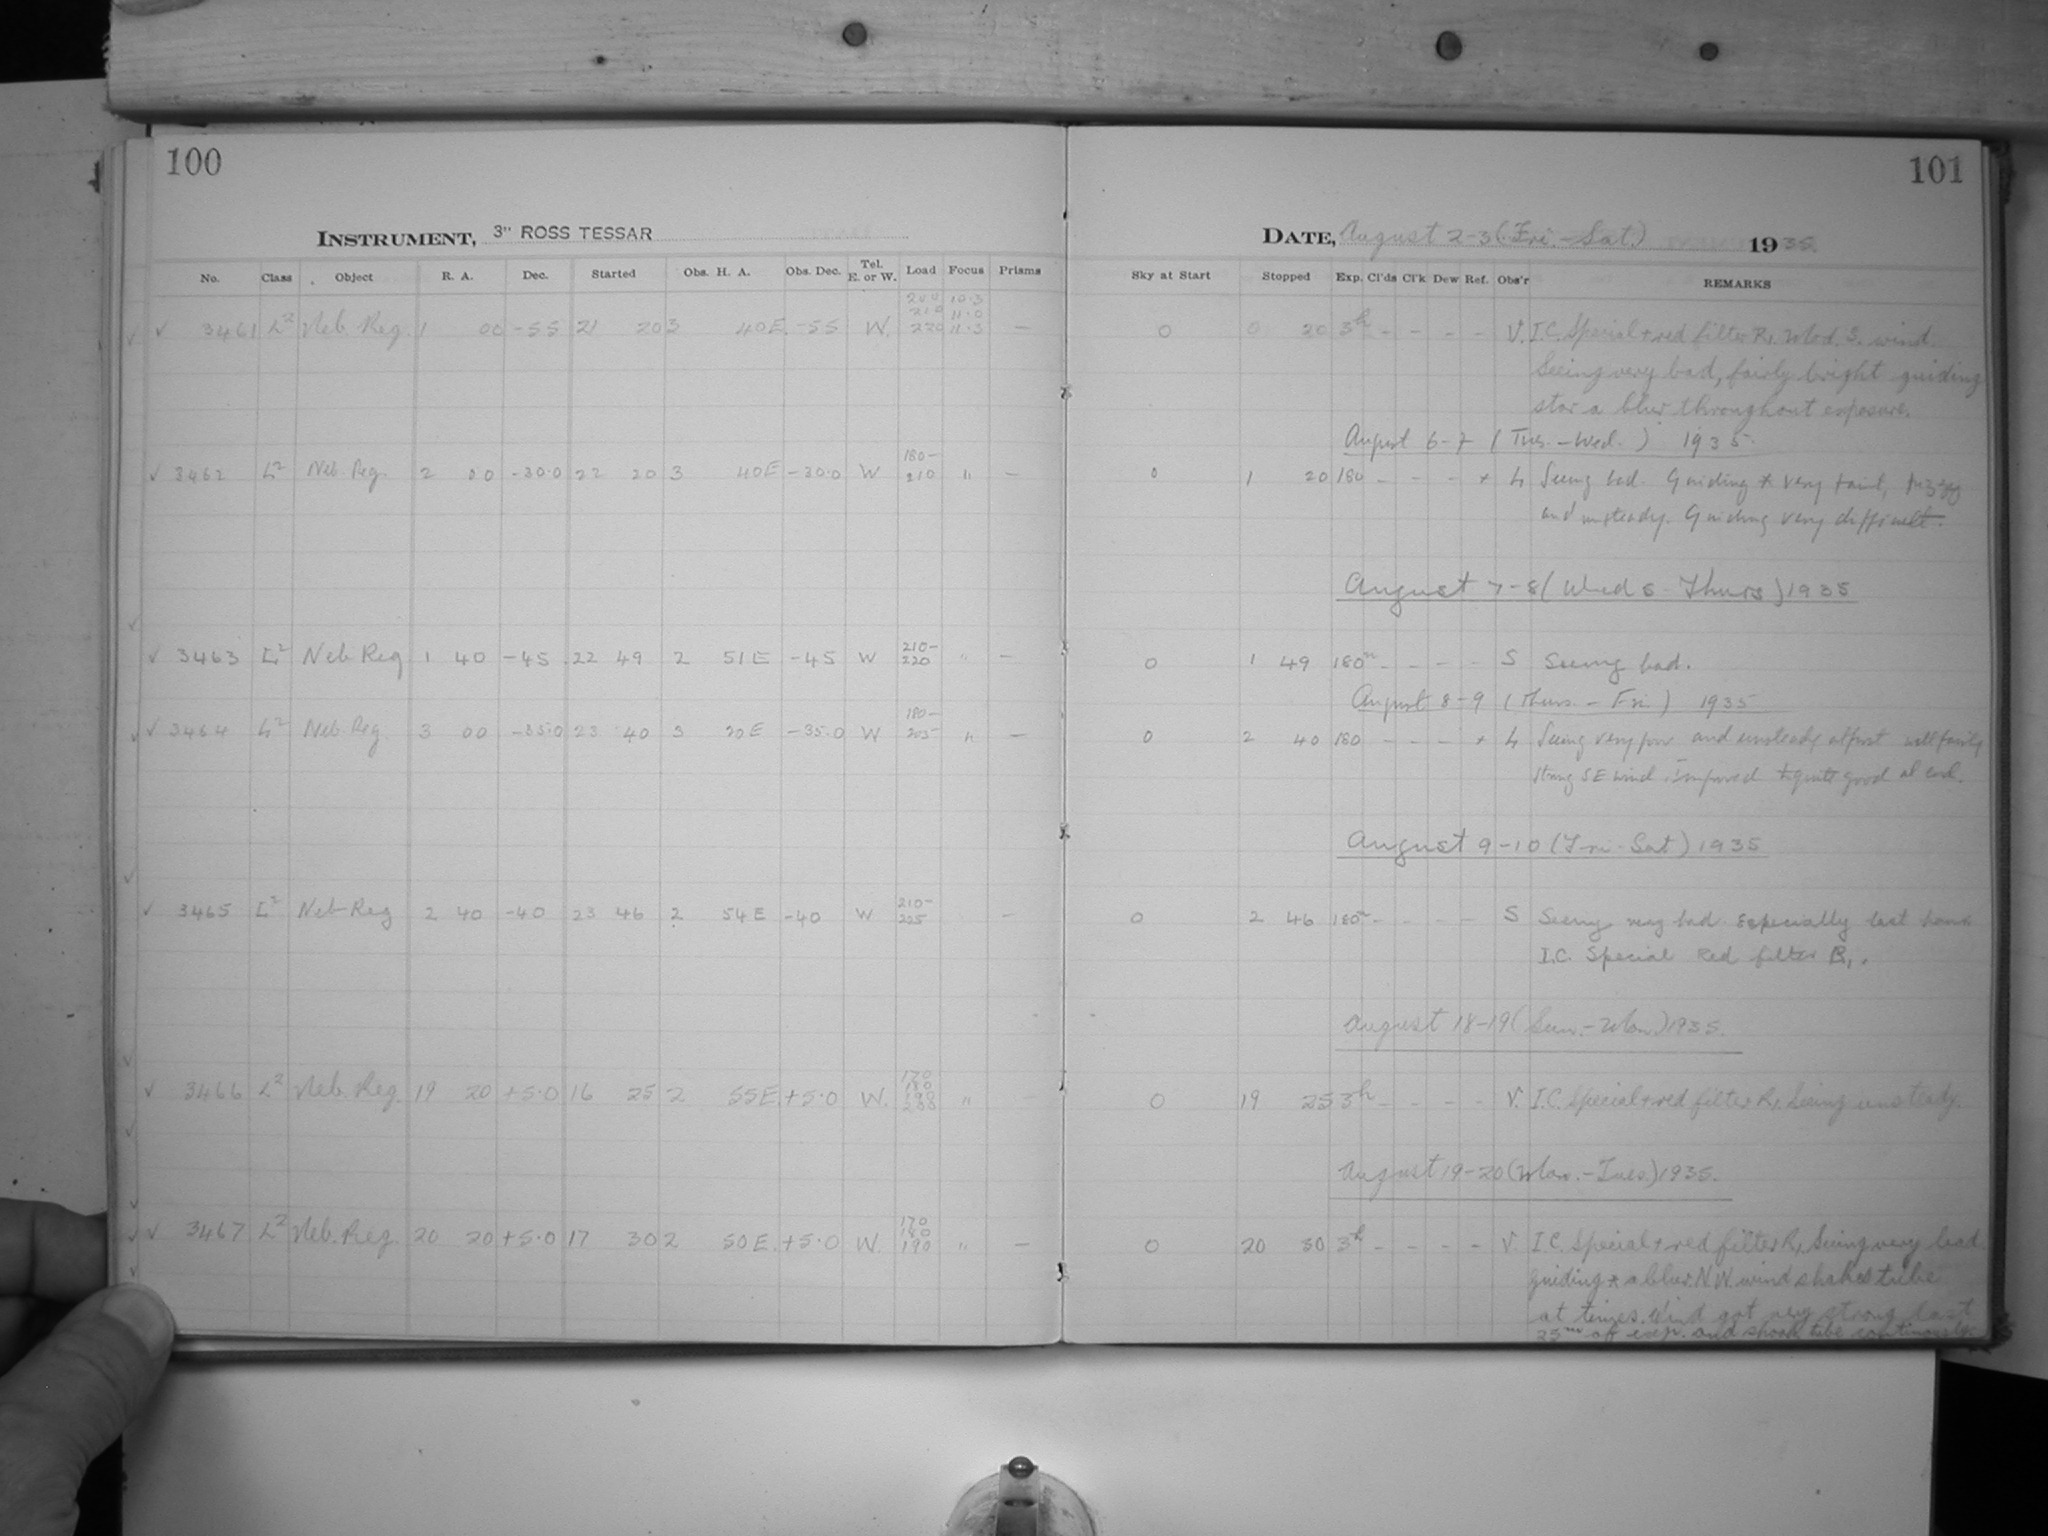 100
INSTRUMENT, 3" ROSS TESSAR
No. Class Object R. A. Dec. Started Obs. H. A. Obs. Dec. Tel. E. or W. Load Focus Prisms
200 10.3
210 11.0
3461 L² Neb. Reg. 1 00 -55 21 20 3 40E -55 W. 220 11.3 —
180-
3462 L² Neb. Reg. 2 00 -30.0 22 20 3 40E -30.0 W 210 " —
210-
3463 L² Neb Reg 1 40 -45 22 49 2 51E -45 W 220 " —
180-
3464 L² Neb Reg. 3 00 -35.0 23 40 3 20E -35.0 W 205 " —
210-
3465 L² Neb Reg 2 40 -40 23 46 2 54E -40 W 225 —
170
180
3466 L² Neb. Reg. 19 20 +5.0 16 25 2 55E +5.0 W. 190 "
200
170
180
3467 L² Neb. Reg. 20 20 +5.0 17 30 2 50E +5.0 W. 190 " —
101
DATE, August 2-3 (Fri.-Sat.) 1935.
Sky at Start Stopped Exp. Cl'ds Cl'k Dew Ref. Obs'r REMARKS
0 0 20 3h - - - - V. I.C. Special + red filter R1. Mod. S. wind.
Seeing very bad, fairly bright guiding
star a blur throughout exposure.
August 6-7 (Tues.-Wed.) 1935.
0 1 20 180 - - - + L Seeing bad. Guiding * very faint, fuzzy
and unsteady. Guiding very difficult.
August 7-8 (Weds-Thurs) 1935
0 1 49 180m - - - - S Seeing bad.
August 8-9 (Thurs.-Fri) 1935
0 2 40 180 - - - + L Seeing very poor and unsteady at first with fairly
strong SE wind. Improved & quite good at end.
August 9-10 (Fri-Sat) 1935
0 2 46 180m - - - - S Seeing very bad especially last hour
I.C. Special Red filter R1.
August 18-19 (Sun.-Mon.) 1935.
0 19 25 3h - - - - V. I.C. Special + red filter R1. Seeing unsteady.
August 19-20 (Mon.-Tues.) 1935.
0 20 30 3h - - - - V. I.C. Special + red filter R1. Seeing very bad
guiding * a blur. N.W. wind shakes tube
at times. Wind got very strong last
25m of exp. and shook tube continuously.